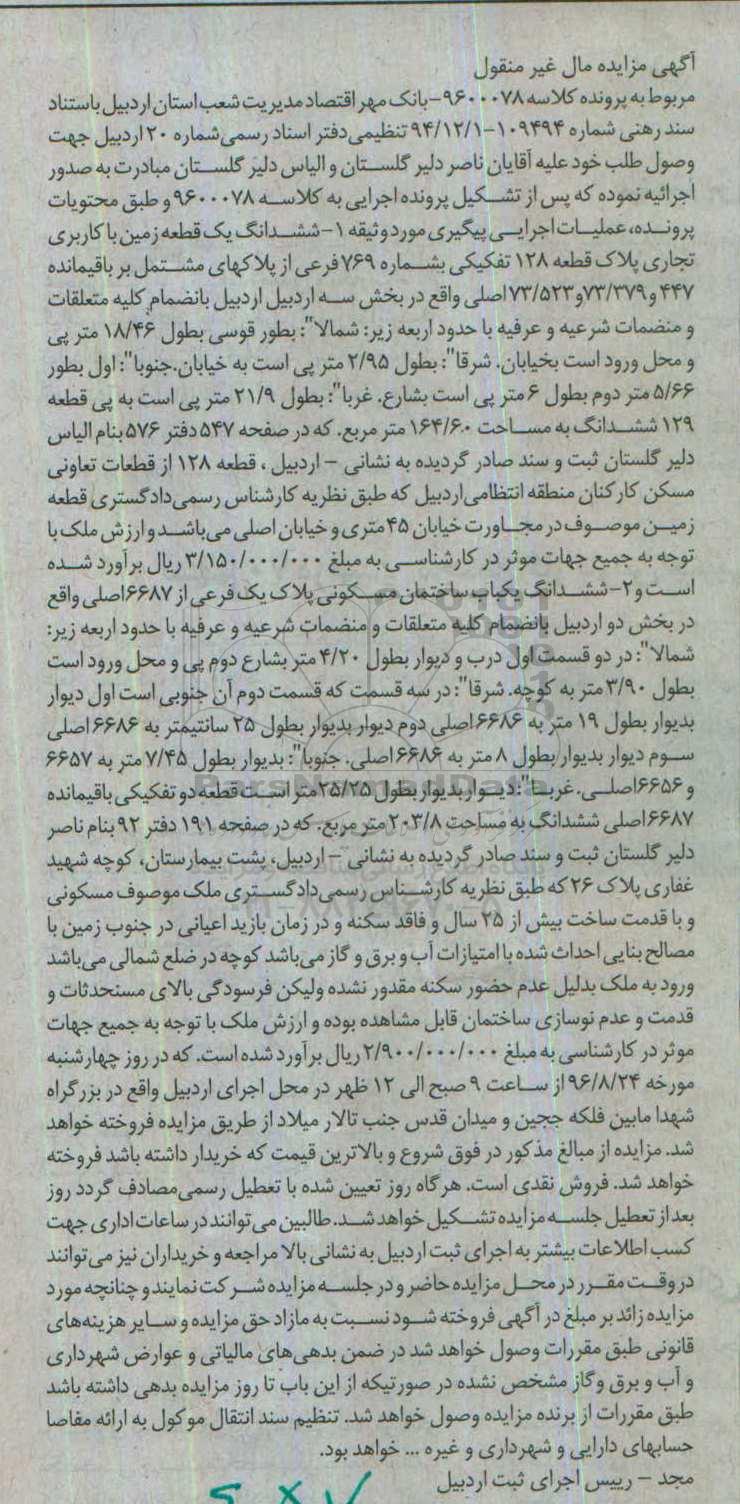 آگهی مزایده مال غیر منقول
مربوط به پرونده کلاسه ۹۶۰۰۰۷۸-بانک مهر اقتصاد مدیریت شعب استان اردبیل باستناد
سند رهنی شماره ۱۰۹۴۹۴-۹۴/۱۲/۱ تنظیمی دفتر اسناد رسمی شماره ۲۰ اردبیل جهت
وصول طلب خود علیه آقایان ناصر دلیر گلستان و الیاس دلیر گلستان مبادرت به صدور
اجرائیه نموده که پس از تشکیل پرونده اجرایی به کلاسه ۹۶۰۰۰۷۸ و طبق محتویات
پرونده، عملیات اجرایی پیگیری مورد وثیقه ۱-ششدانگ یک قطعه زمین با کاربری
تجاری پلاک قطعه ۱۲۸ تفکیکی بشماره ۷۶۹ فرعی از پلاکهای مشتمل بر باقیمانده
۴۴۷ و ۷۳/۳۷۹ و ۷۳/۵۲۳ اصلی واقع در بخش سه اردبیل اردبیل بانضمام کلیه متعلقات
و منضمات شرعیه و عرفیه با حدود اربعه زیر: شمالا": بطور قوسی بطول ۱۸/۴۶ متر پی
و محل ورود است بخیابان. شرقا": بطول ۲/۹۵ متر پی است به خیابان.جنوبا": اول بطور
۵/۶۶ متر دوم بطول ۶ متر پی است بشارع. غربا": بطول ۲۱/۹ متر پی است به پی قطعه
۱۲۹ ششدانگ به مساحت ۱۶۴/۶۰ متر مربع. که در صفحه ۵۴۷ دفتر ۵۷۶ بنام الیاس
دلیر گلستان ثبت و سند صادر گردیده به نشانی – اردبیل ، قطعه ۱۲۸ از قطعات تعاونی
مسکن کارکنان منطقه انتظامی اردبیل که طبق نظریه کارشناس رسمی دادگستری قطعه
زمین موصوف در مجاورت خیابان ۴۵ متری و خیابان اصلی می‌باشد و ارزش ملک با
توجه به جمیع جهات موثر در کارشناسی به مبلغ ۳/۱۵۰/۰۰۰/۰۰۰ ریال برآورد شده
است و ۲-ششدانگ یکباب ساختمان مسکونی پلاک یک فرعی از ۶۶۸۷ اصلی واقع
در بخش دو اردبیل بانضمام کلیه متعلقات و منضمات شرعیه و عرفیه با حدود اربعه زیر:
شمالا": در دو قسمت اول درب و دیوار بطول ۴/۲۰ متر بشارع دوم پی و محل ورود است
بطول ۳/۹۰ متر به کوچه. شرقا": در سه قسمت که قسمت دوم آن جنوبی است اول دیوار
بدیوار بطول ۱۹ متر به ۶۶۸۶ اصلی دوم دیوار بدیوار بطول ۲۵ سانتیمتر به ۶۶۸۶ اصلی
سوم دیوار بدیوار بطول ۸ متر به ۶۶۸۶ اصلی. جنوبا": بدیوار بطول ۷/۴۵ متر به ۶۶۵۷
و ۶۶۵۶ اصلی. غربا": دیوار بدیوار بطول ۲۵/۲۵ متر است قطعه دو تفکیکی باقیمانده
۶۶۸۷ اصلی ششدانگ به مساحت ۲۰۳/۸ متر مربع. که در صفحه ۱۹۱ دفتر ۹۲ بنام ناصر
دلیر گلستان ثبت و سند صادر گردیده به نشانی – اردبیل، پشت بیمارستان، کوچه شهید
غفاری پلاک ۲۶ که طبق نظریه کارشناس رسمی دادگستری ملک موصوف مسکونی
و با قدمت ساخت بیش از ۲۵ سال و فاقد سکنه و در زمان بازید اعیانی در جنوب زمین با
مصالح بنایی احداث شده با امتیازات آب و برق و گاز می‌باشد کوچه در ضلع شمالی می‌باشد
ورود به ملک بدلیل عدم حضور سکنه مقدور نشده ولیکن فرسودگی بالای مستحدثات و
قدمت و عدم نوسازی ساختمان قابل مشاهده بوده و ارزش ملک با توجه به جمیع جهات
موثر در کارشناسی به مبلغ ۲/۹۰۰/۰۰۰/۰۰۰ ریال برآورد شده است. که در روز چهارشنبه
مورخه ۹۶/۸/۲۴ از ساعت ۹ صبح الی ۱۲ ظهر در محل اجرای اردبیل واقع در بزرگراه
شهدا مابین فلکه ججین و میدان قدس جنب تالار میلاد از طریق مزایده فروخته خواهد
شد. مزایده از مبالغ مذکور در فوق شروع و بالاترین قیمت که خریدار داشته باشد فروخته
خواهد شد. فروش نقدی است. هرگاه روز تعیین شده با تعطیل رسمی مصادف گردد روز
بعد از تعطیل جلسه مزایده تشکیل خواهد شد. طالبین می‌توانند در ساعات اداری جهت
کسب اطلاعات بیشتر به اجرای ثبت اردبیل به نشانی بالا مراجعه و خریداران نیز می‌توانند
در وقت مقرر در محل مزایده حاضر و در جلسه مزایده شرکت نمایند و چنانچه مورد
مزایده زائد بر مبلغ در آگهی فروخته شود نسبت به مازاد حق مزایده و سایر هزینه‌های
قانونی طبق مقررات وصول خواهد شد در ضمن بدهی‌های مالیاتی و عوارض شهرداری
و آب و برق و گاز مشخص نشده در صورتیکه از این باب تا روز مزایده بدهی داشته باشد
طبق مقررات از برنده مزایده وصول خواهد شد. تنظیم سند انتقال موکول به ارائه مفاصا
حسابهای دارایی و شهرداری و غیره ... خواهد بود.
مجد – رییس اجرای ثبت اردبیل
ParsNamadData